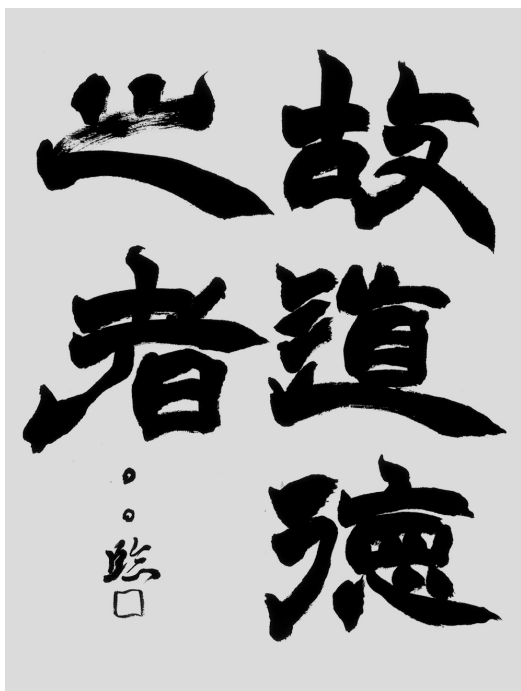 故道德
之者
。。臨